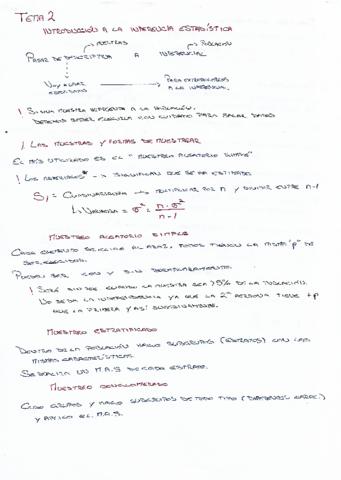 TEMA 2
INTRODUCCIÓN A LA INFERENCIA ESTADÍSTICA
MUESTRAS POBLACIÓN
PASAR DE DESCRIPTIVA A INFERENCIAL
PARA
A LA INFERENCIAL
! SI UNA MUESTRA REPRESENTA A LA POBLACIÓN.
DEBEMOS SABER ELEGIRLA CON CUIDADO PARA SACAR DATOS
LAS MUESTRAS Y FORMAS DE MUESTREAR
EL MÁS UTILIZADO ES EL "MUESTREO ALEATORIO SIMPLE"
! LOS * -> SIGNIFICAN QUE SE HA ESTIMADO
S = CUASIVARIANZA -> MULTIPLICAR POR n Y DIVIDIR ENTRE n-1
VARIANZA = σ² = n·σ² / n-1
MUESTREO ALEATORIO SIMPLE
CADA ELEMENTO SE ELIGE AL AZAR, TODOS TIENEN LA MISMA "p" DE
SER ELEGIDOS.
PUEDEN SER CON Y SIN REEMPLAZAMIENTO.
! SERÁ SIN CUANDO LA MUESTRA SEA >5% DE LA POBLACIÓN.
NO SE DA LA INDEPENDENCIA YA QUE LA 2ª PERSONA TIENE +p
QUE LA PRIMERA Y ASÍ SUCESIVAMENTE.
MUESTREO ESTRATIFICADO
DENTRO DE LA POBLACIÓN HAGO SUBGRUPOS (ESTRATOS) CON LAS
MISMAS CARACTERÍSTICAS.
SE REALIZA UN M.A.S DE CADA ESTRATO.
MUESTREO CONGLOMERADO
CREO GRUPOS Y HAGO SUBGRUPOS DE TODO TIPO (DIFERENTES CARAC.)
Y APLICO EL M.A.S.